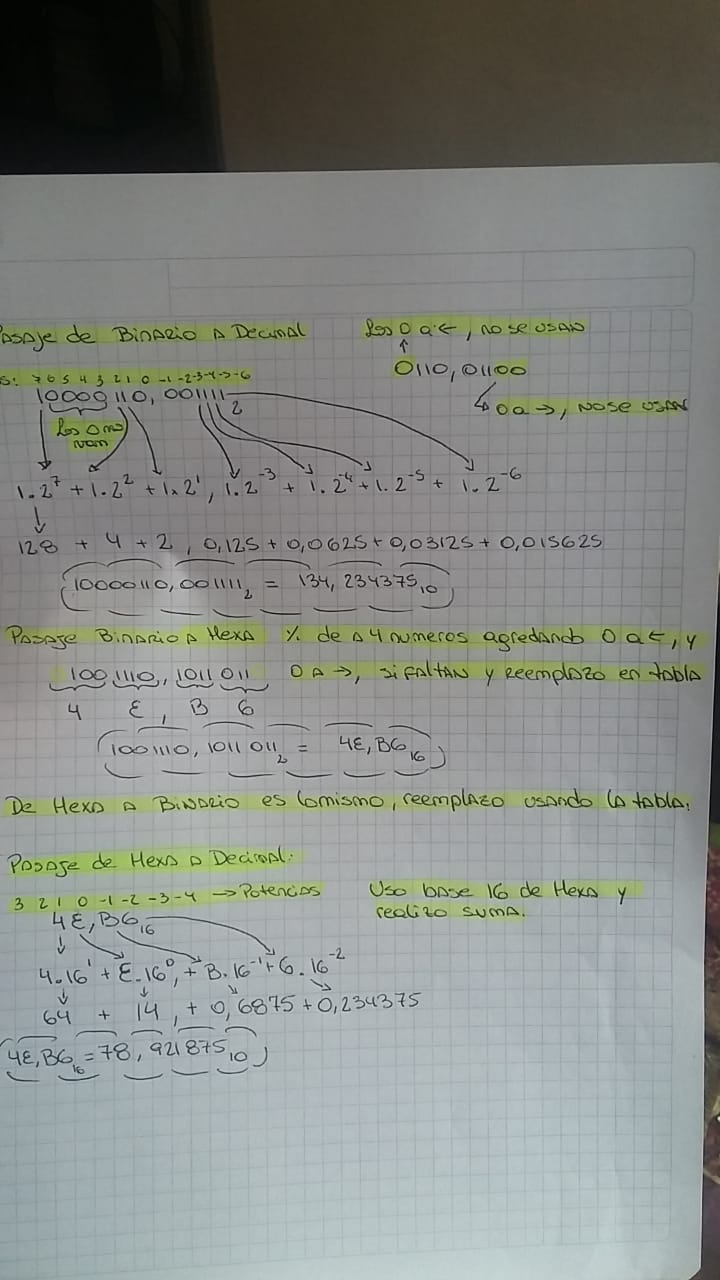 Pasaje de Binario a Decimal
Los 0 a ←, no se usan
↑
0110,01100
↳ 0 a →, no se usan
s: 7 6 5 4 3 2 1 0 -1 -2 -3 -4 -5 -6
10000110,001111₂
Los 0 no
van
1.2⁷ + 1.2² + 1.2¹, 1.2⁻³ + 1.2⁻⁴ + 1.2⁻⁵ + 1.2⁻⁶
128 + 4 + 2, 0,125 + 0,0625 + 0,03125 + 0,015625
10000110,001111₂ = 134,234375₁₀
Pasaje Binario a Hexa % de a 4 numeros agregando 0 a ←, y
100 1110, 1011 011 0 a →, si faltan y reemplazo en tabla
4 E, B 6
1001110,1011011₂ = 4E,B6₁₆
De Hexa a Binario es lo mismo, reemplazo usando la tabla.
Pasaje de Hexa a Decimal:
3 2 1 0 -1 -2 -3 -4 → Potencias
Uso base 16 de Hexa y
realizo suma.
4E,B6₁₆
4.16¹ + E.16⁰, + B.16⁻¹ + 6.16⁻²
64 + 14, + 0,6875 + 0,234375
4E,B6₁₆ = 78,921875₁₀